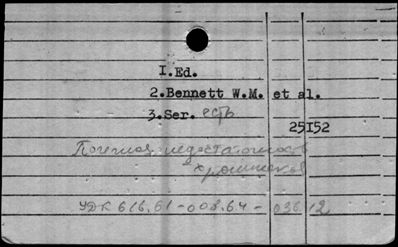 I.Ed.
2.Bennett W.M. et al.
3.Ser. есть
25I52
Почечная недостаточность
хроническая
УДК 616.61-008.64-036.12